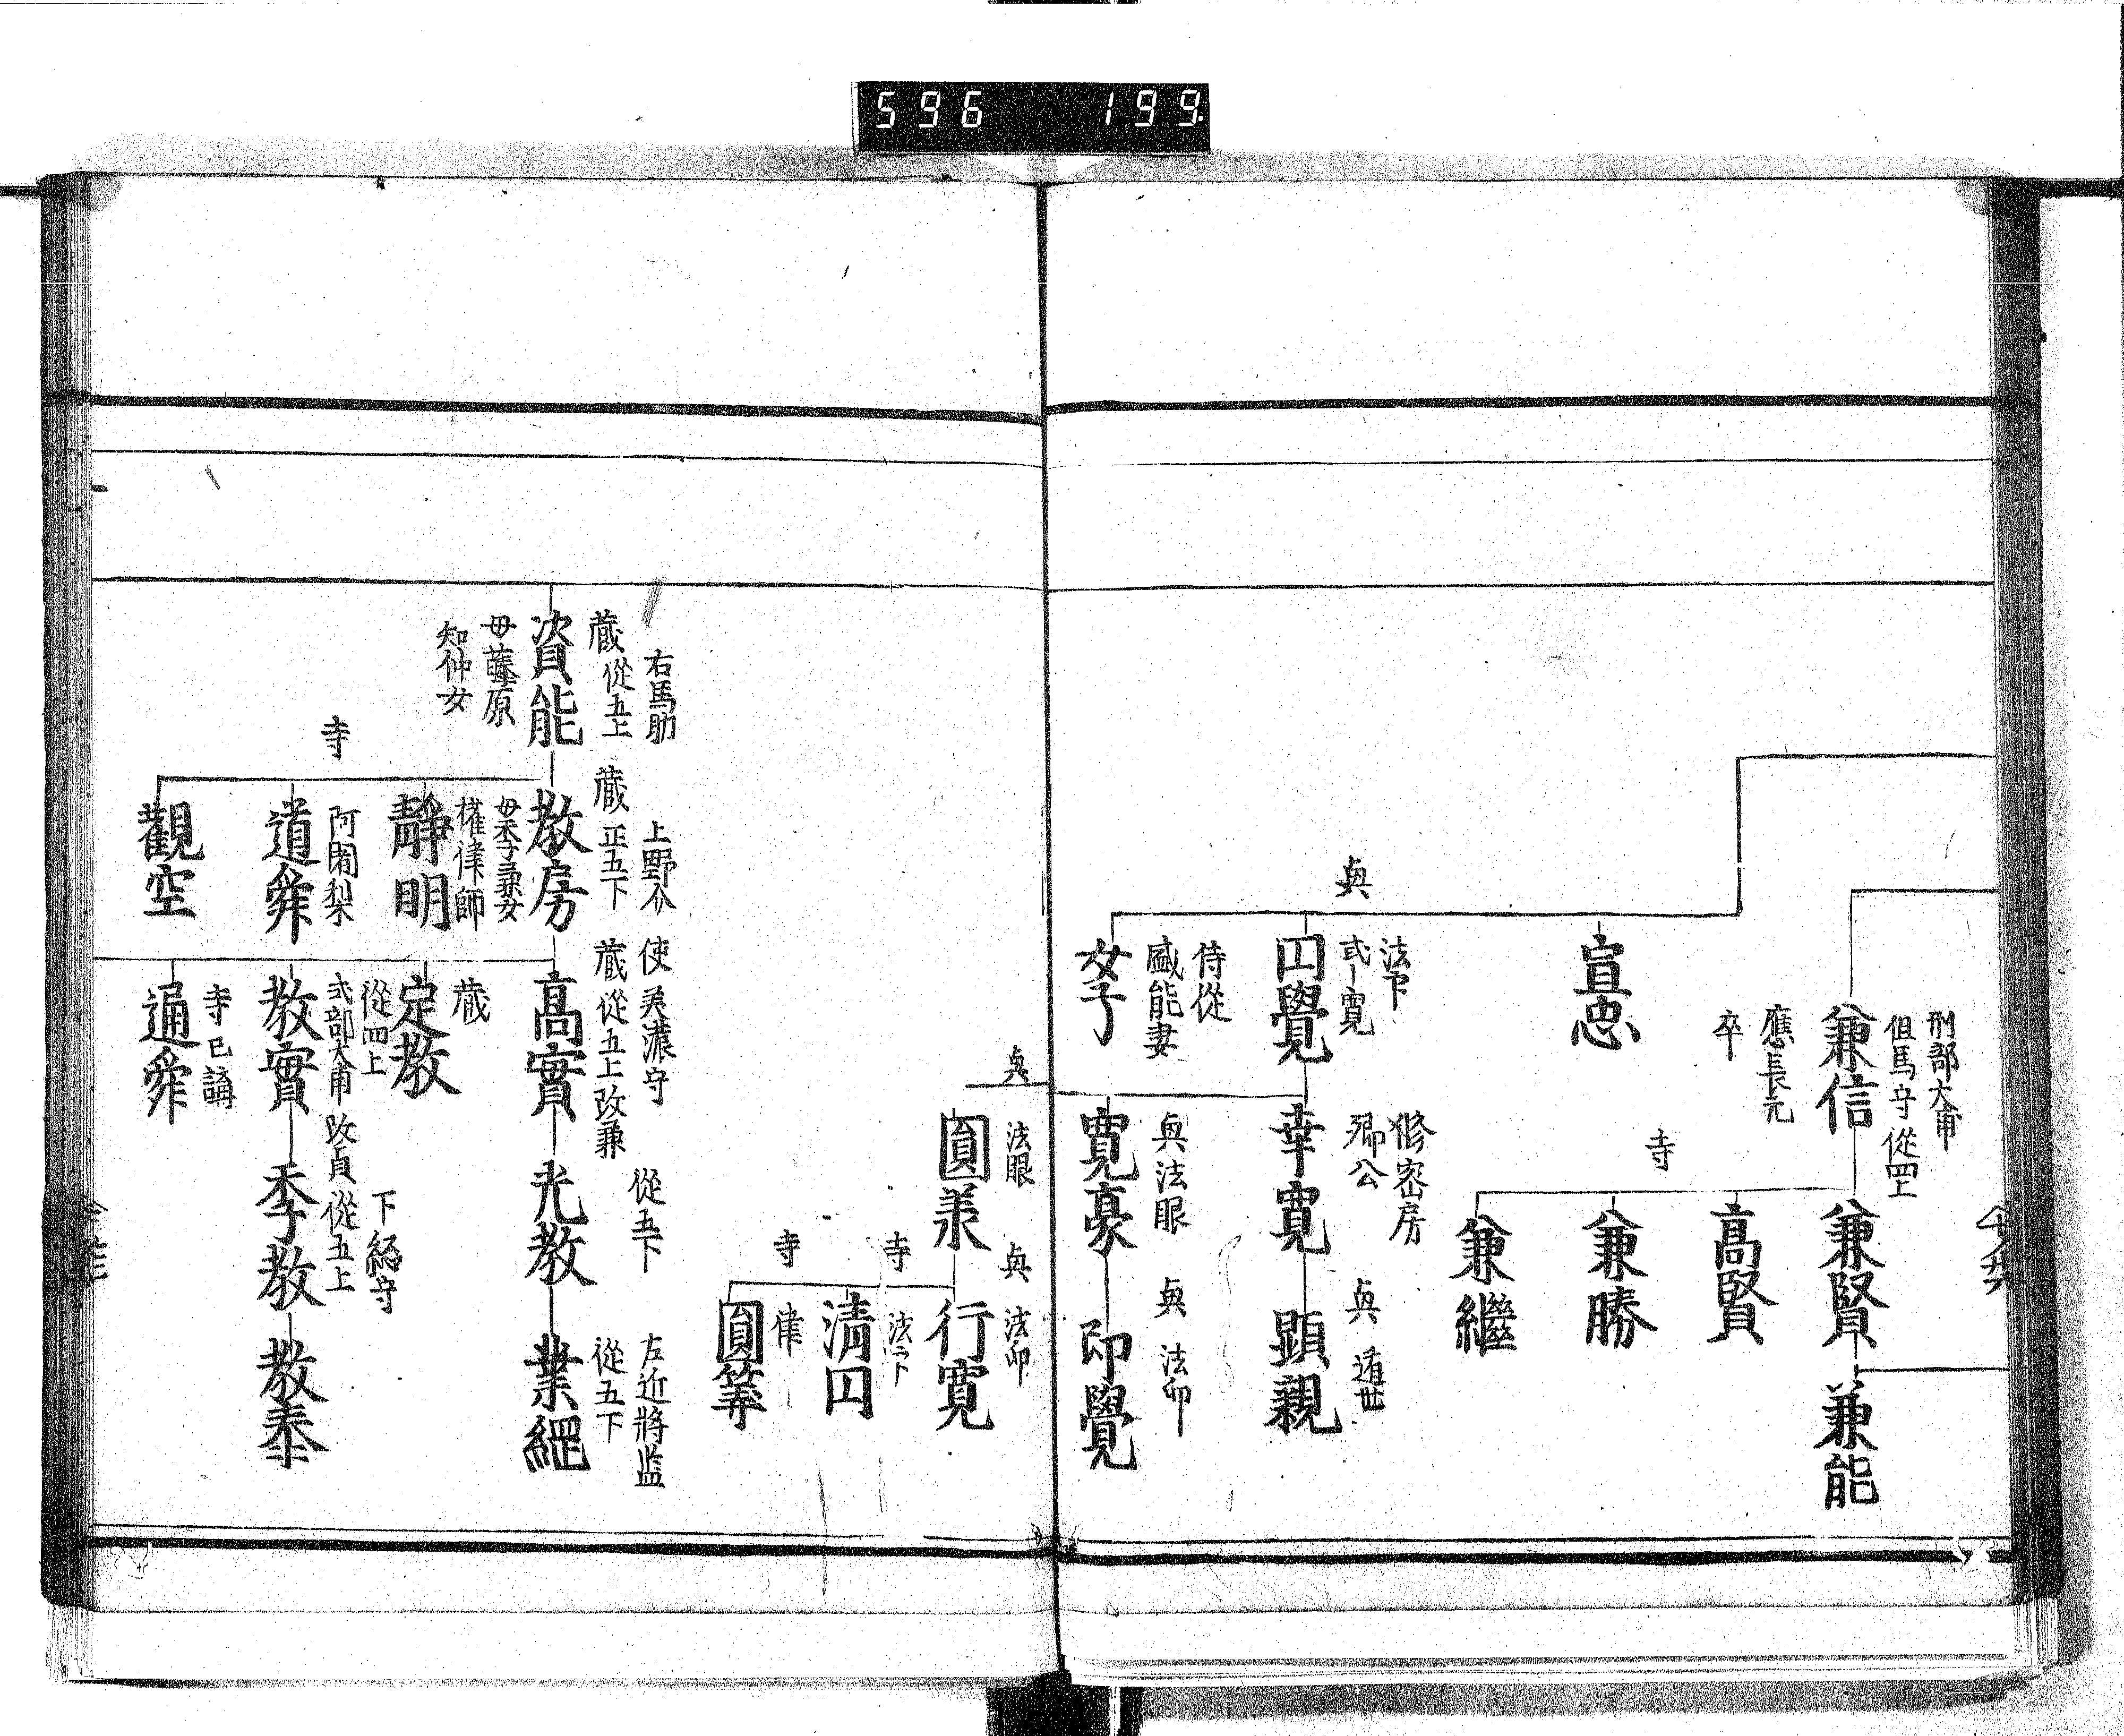 596 199
刑部大甫
但馬守 從四上
兼信
兼賢
兼能
高賢
寺
兼勝
兼繼
應長元
卒
宣忠
法下
式ー寛
円覺
侍從
盛能妻
女子
修密房
卿公
幸寛
遁世
顕親
法眼
寛豪
法印
印覺
法眼
圓兼
法印
行寛
寺
法下
清円
寺
律
圓筭
右馬助
蔵 從五上
資能
母藤原
知仲女
上野介
蔵 正五下
教房
母木工季兼女
權律師
靜明
阿闍梨
道舜
寺
觀空
使 美濃守
蔵 從五上 改兼
高實
從五下
光教
左近將監
從五下
業綱
蔵
定教
從四上
式部大甫 改貞
教實
下総守
從五上
季教
教泰
寺 已講
通舜